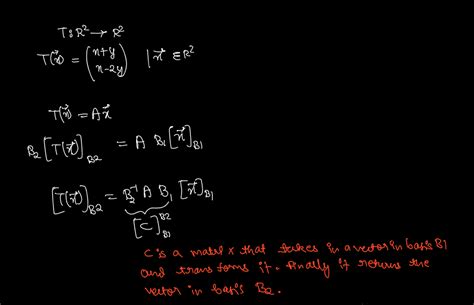 T: R² → R²
T(x⃗) = (x+y x-2y) | x⃗ ∈ R²
T(x⃗) = A x⃗
B₂ [T(x⃗)]_B2 = A B₁ [x⃗]_B1
[T(x⃗)]_B2 = B₂⁻¹ A B₁ [x⃗]_B1
[C]_B1^B2
C is a matrix that takes in a vector in basis B1
and transforms it. Finally it returns the
vector in basis B₂.